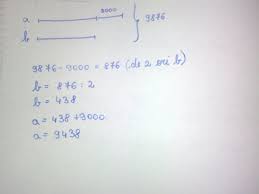 9000
a
b
9876
9876 - 9000 = 876 (de 2 ori b)
b = 876 : 2
b = 438
a = 438 + 9000
a = 9438